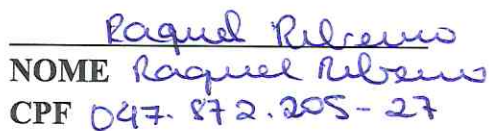 Raquel Ribeiro
NOME Raquel Ribeiro
CPF 047.872.205-27